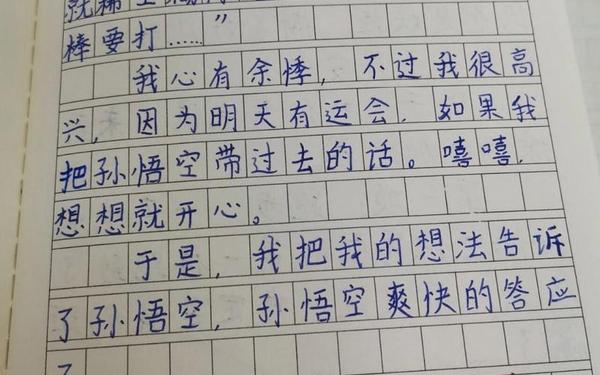 就稀
棒要打……”
我心有余悸，不过我很高
兴，因为明天有运会，如果我
把孙悟空带过去的话。嘻嘻，
想想就开心。
于是，我把我的想法告诉
了孙悟空，孙悟空爽快的答应
了